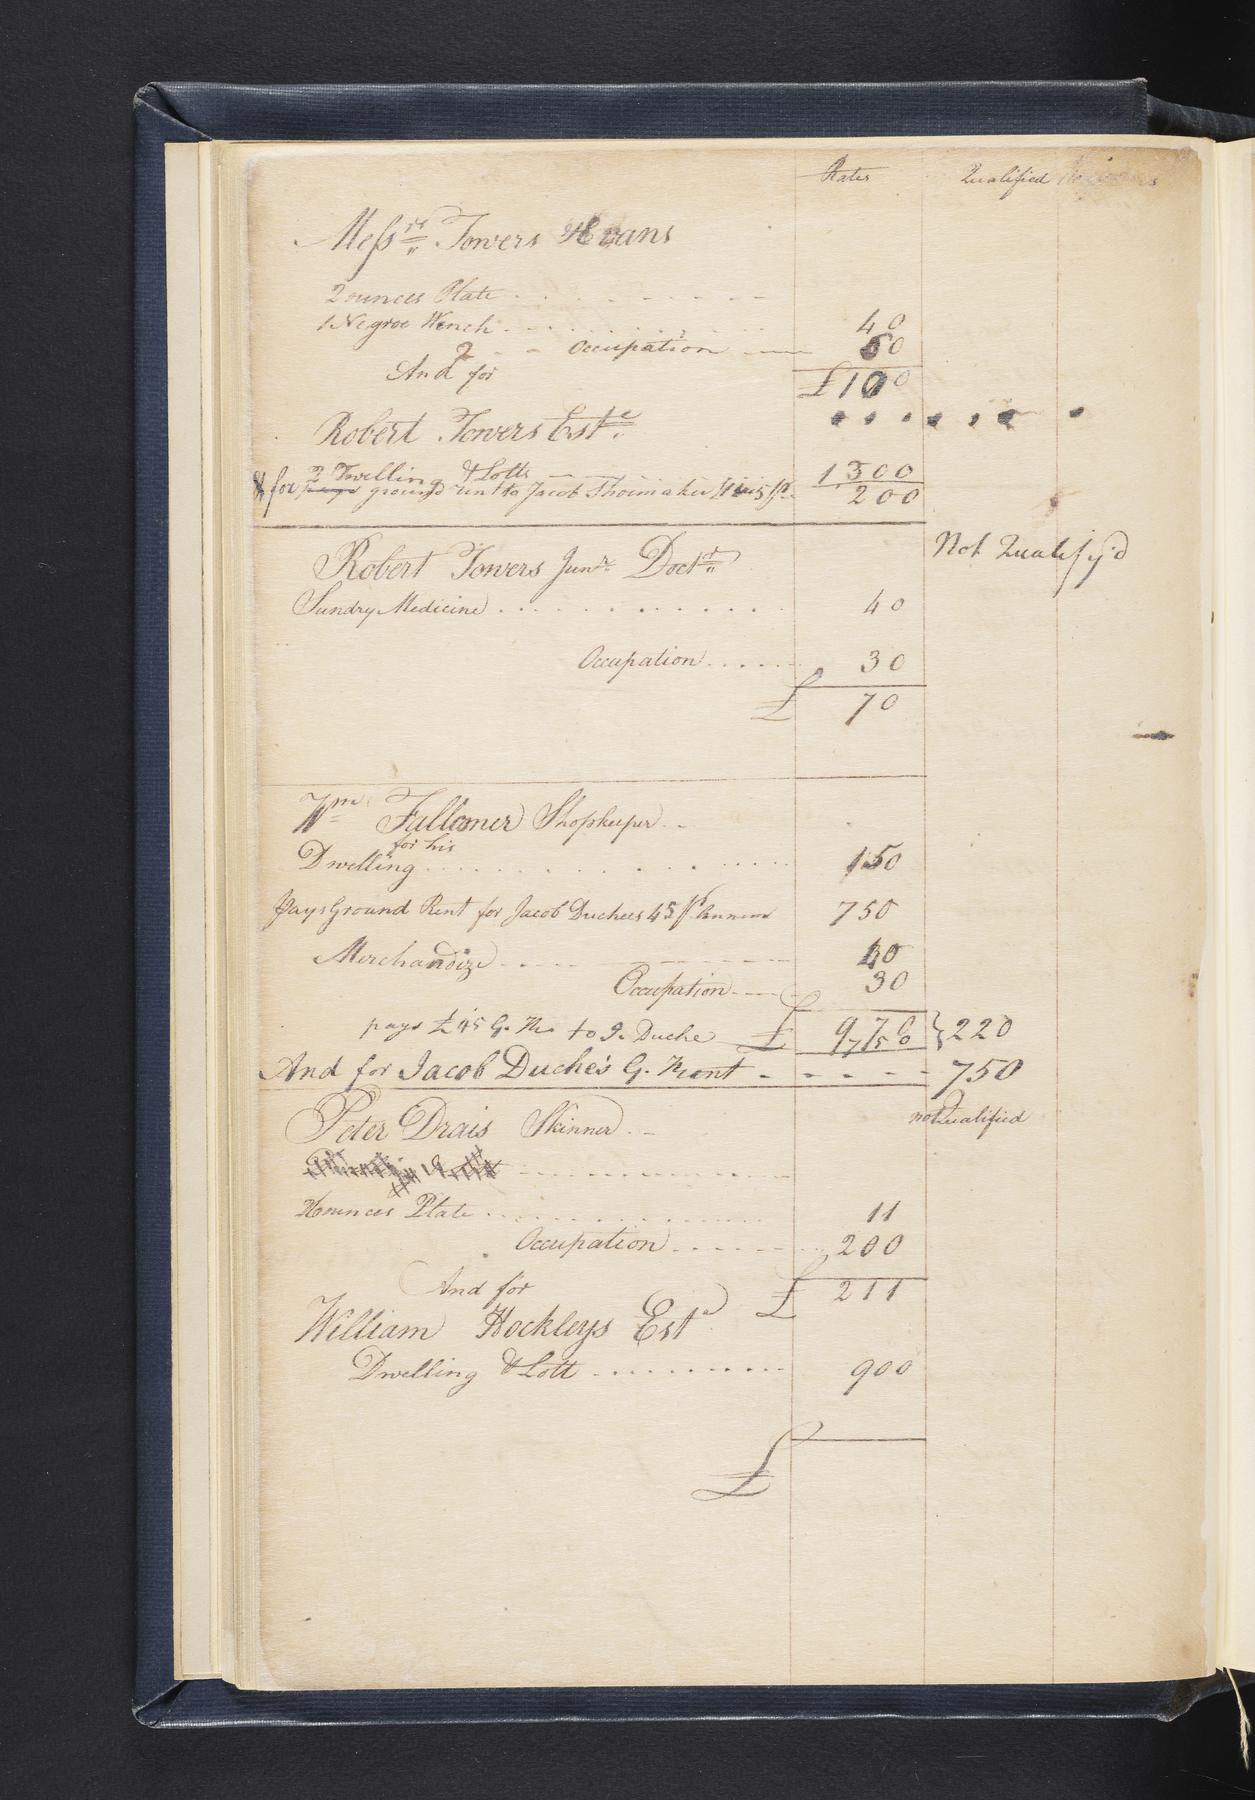 Rates Qualified
Messrs Towers & Evans
2 ounces Plate
1 Negroe Wench 40
2 Occupation 60
And for £100
Robert Towers Este
2 Dwelling & Lotts 1300
& for pays ground rent to Jacob Shoemaker 200
Robert Towers Junr Doctr Not Qualify'd
Sundry Medicine 40
Occupation 30
£ 70
Wm Fullomer Shopkeeper
for his
Dwelling 150
Pays Ground Rent for Jacob Duchees 45 pr Annum 750
Merchandize 40
Occupation 30
pays £45 G. R. to J. Duche £ 970 } 220
And for Jacob Duche's G. Rent 750
Peter Drais Skinner not Qualified
ounces Plate 11
Occupation 200
And for £ 211
William Hockleys Este
Dwelling & Lott 900
£